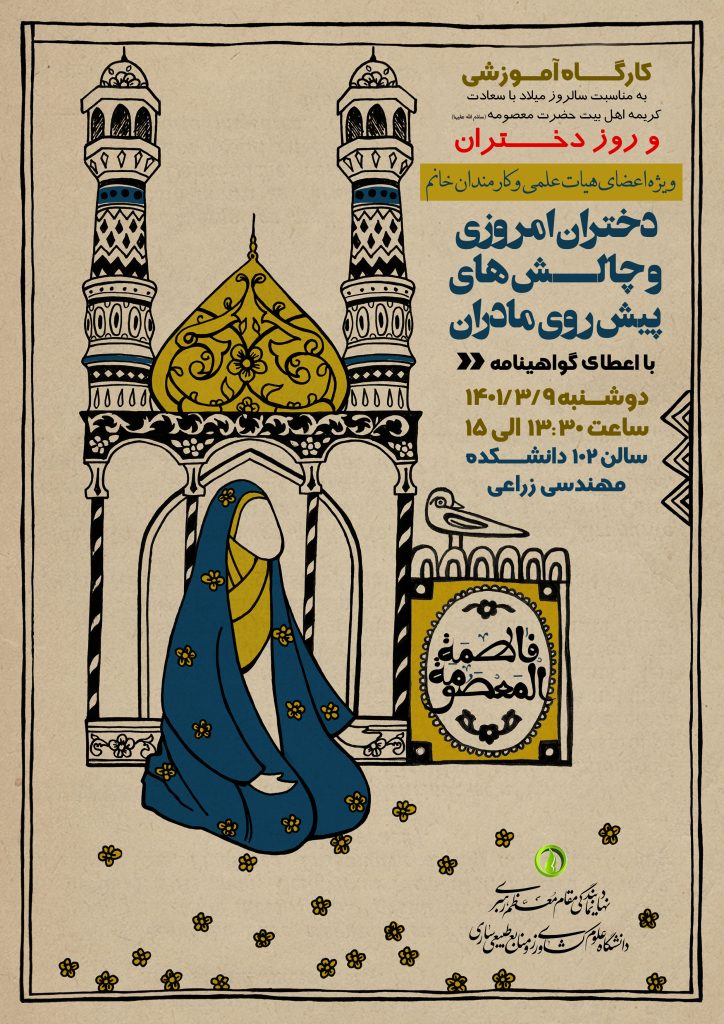 کارگاه آموزشی
به مناسبت سالروز میلاد با سعادت
کریمه اهل بیت حضرت معصومه (سلام الله علیها)
و روز دختران
ویژه اعضای هیات علمی و کارمندان خانم
دختران امروزی
و چالش های
پیش روی مادران
با اعطای گواهینامه
دوشنبه ۱۴۰۱/۳/۹
ساعت ۱۳:۳۰ الی ۱۵
سالن ۱۰۲ دانشکده
مهندسی زراعی
فاطمة
المعصومة
نهاد نمایندگی مقام معظم رهبری
دانشگاه علوم کشاورزی و منابع طبیعی ساری